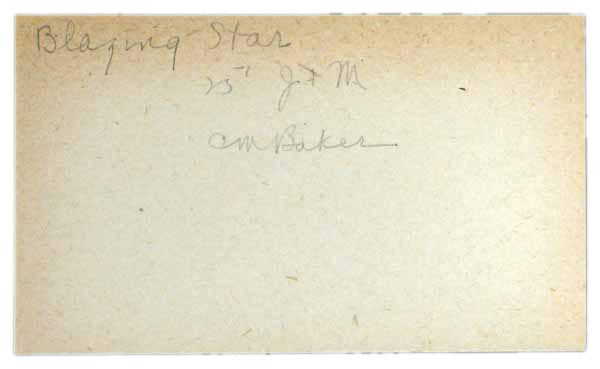 Blazing Star
25' J + M
CM Baker